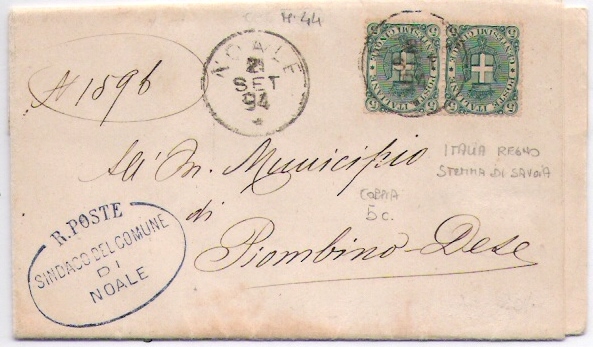 N. 44
N 1896
NOALE
2
SET
94
All' On. Municipio
di
Piombino Dese
ITALIA REGNO
STEMMA DI SAVOIA
COPPIA
5 c.
R. POSTE
SINDACO DEL COMUNE
DI
NOALE